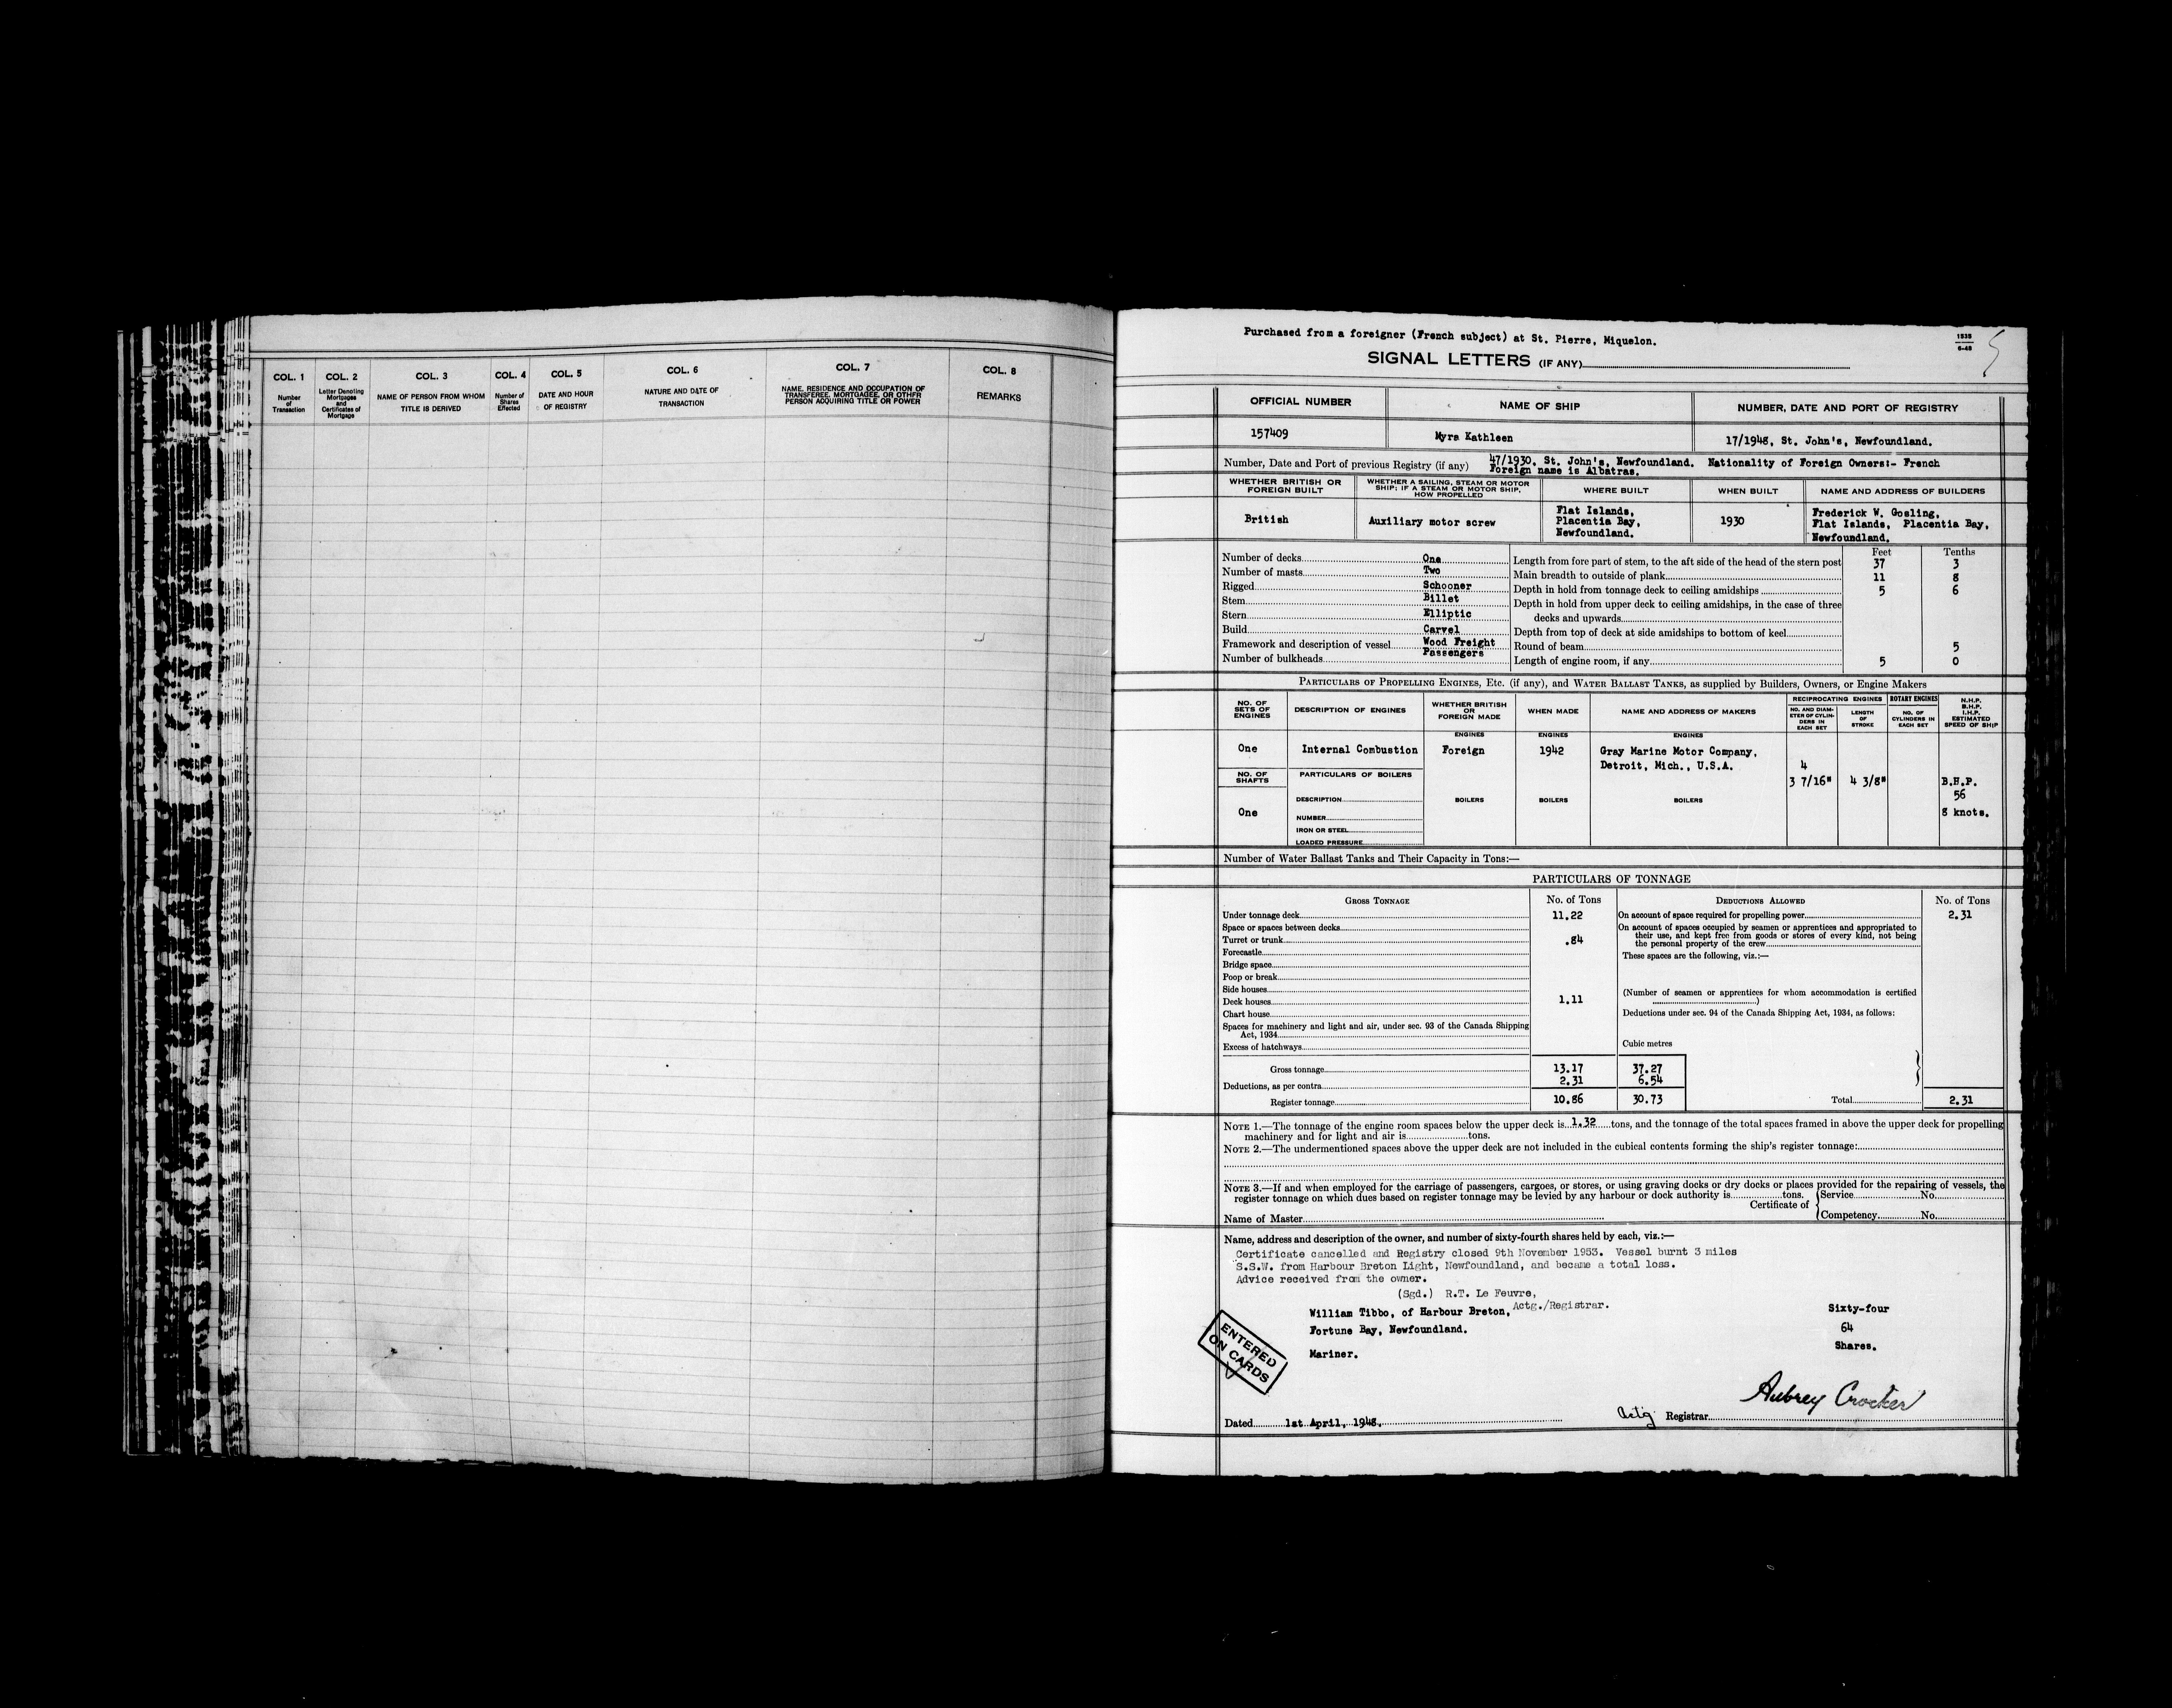 COL. 1
Number
of
Transaction
COL. 2
Letter Denoting
Mortgages
and
Certificates of
Mortgage
COL. 3
NAME OF PERSON FROM WHOM
TITLE IS DERIVED
COL. 4
Number of
Shares
Effected
COL. 5
DATE AND HOUR
OF REGISTRY
COL. 6
NATURE AND DATE OF
TRANSACTION
COL. 7
NAME, RESIDENCE AND OCCUPATION OF
TRANSFEREE, MORTGAGEE, OR OTHER
PERSON ACQUIRING TITLE OR POWER
COL. 8
REMARKS
Purchased from a foreigner (French subject) at St. Pierre, Miquelon.
1535
6-48
SIGNAL LETTERS (IF ANY)
OFFICIAL NUMBER
NAME OF SHIP
NUMBER, DATE AND PORT OF REGISTRY
157409
Myra Kathleen
17/1948, St. John's, Newfoundland.
Number, Date and Port of previous Registry (if any) 47/1930, St. John's, Newfoundland. Nationality of Foreign Owners:- French
Foreign name is Albatras.
WHETHER BRITISH OR
FOREIGN BUILT
WHETHER A SAILING, STEAM OR MOTOR
SHIP; IF A STEAM OR MOTOR SHIP,
HOW PROPELLED
WHERE BUILT
WHEN BUILT
NAME AND ADDRESS OF BUILDERS
British
Auxiliary motor screw
Flat Islands,
Placentia Bay,
Newfoundland.
1930
Frederick W. Gosling,
Flat Islands, Placentia Bay,
Newfoundland.
Feet Tenths
Number of decks One
Number of masts Two
Rigged Schooner
Stem Billet
Stern Elliptic
Build Carvel
Framework and description of vessel Wood Freight
Passengers
Number of bulkheads
Length from fore part of stem, to the aft side of the head of the stern post 37 3
Main breadth to outside of plank 11 8
Depth in hold from tonnage deck to ceiling amidships 5 6
Depth in hold from upper deck to ceiling amidships, in the case of three
decks and upwards
Depth from top of deck at side amidships to bottom of keel
Round of beam 5
Length of engine room, if any 5 0
PARTICULARS OF PROPELLING ENGINES, ETC. (if any), and WATER BALLAST TANKS, as supplied by Builders, Owners, or Engine Makers
NO. OF
SETS OF
ENGINES
DESCRIPTION OF ENGINES
WHETHER BRITISH
OR
FOREIGN MADE
WHEN MADE
NAME AND ADDRESS OF MAKERS
RECIPROCATING ENGINES
NO. AND DIAM-
ETER OF CYLIN-
DERS IN
EACH SET
LENGTH
OF
STROKE
ROTARY ENGINES
NO. OF
CYLINDERS IN
EACH SET
N.H.P.
B.H.P.
I.H.P.
ESTIMATED
SPEED OF SHIP
ENGINES ENGINES ENGINES
One
Internal Combustion
Foreign
1942
Gray Marine Motor Company,
Detroit, Mich., U.S.A.
4
3 7/16"
4 3/8"
B.H.P.
56
8 knots.
NO. OF
SHAFTS
One
PARTICULARS OF BOILERS
DESCRIPTION
NUMBER
IRON OR STEEL
LOADED PRESSURE
BOILERS BOILERS BOILERS
Number of Water Ballast Tanks and Their Capacity in Tons:—
PARTICULARS OF TONNAGE
GROSS TONNAGE
No. of Tons
DEDUCTIONS ALLOWED
No. of Tons
Under tonnage deck 11.22
Space or spaces between decks
Turret or trunk .84
Forecastle
Bridge space
Poop or break
Side houses
Deck houses 1.11
Chart house
Spaces for machinery and light and air, under sec. 93 of the Canada Shipping
Act, 1934
Excess of hatchways
Cubic metres
Gross tonnage 13.17 37.27
Deductions, as per contra 2.31 6.54
Register tonnage 10.86 30.73
On account of space required for propelling power 2.31
On account of spaces occupied by seamen or apprentices and appropriated to
their use, and kept free from goods or stores of every kind, not being
the personal property of the crew
These spaces are the following, viz.:—
(Number of seamen or apprentices for whom accommodation is certified
)
Deductions under sec. 94 of the Canada Shipping Act, 1934, as follows:
Total 2.31
NOTE 1.—The tonnage of the engine room spaces below the upper deck is 1.32 tons, and the tonnage of the total spaces framed in above the upper deck for propelling
machinery and for light and air is tons.
NOTE 2.—The undermentioned spaces above the upper deck are not included in the cubical contents forming the ship's register tonnage:
NOTE 3.—If and when employed for the carriage of passengers, cargoes, or stores, or using graving docks or dry docks or places provided for the repairing of vessels, the
register tonnage on which dues based on register tonnage may be levied by any harbour or dock authority is tons.
Certificate of
Service No.
Competency No.
Name of Master
Name, address and description of the owner, and number of sixty-fourth shares held by each, viz.:—
Certificate cancelled and Registry closed 9th November 1953. Vessel burnt 3 miles
S.S.W. from Harbour Breton Light, Newfoundland, and became a total loss.
Advice received from the owner.
(Sgd.) R.T. Le Feuvre,
Actg./Registrar.
William Tibbo, of Harbour Breton,
Fortune Bay, Newfoundland.
Mariner.
Sixty-four
64
Shares.
ENTERED
ON CARDS
Aubrey Crocker
Dated 1st April, 1948.
Actg Registrar